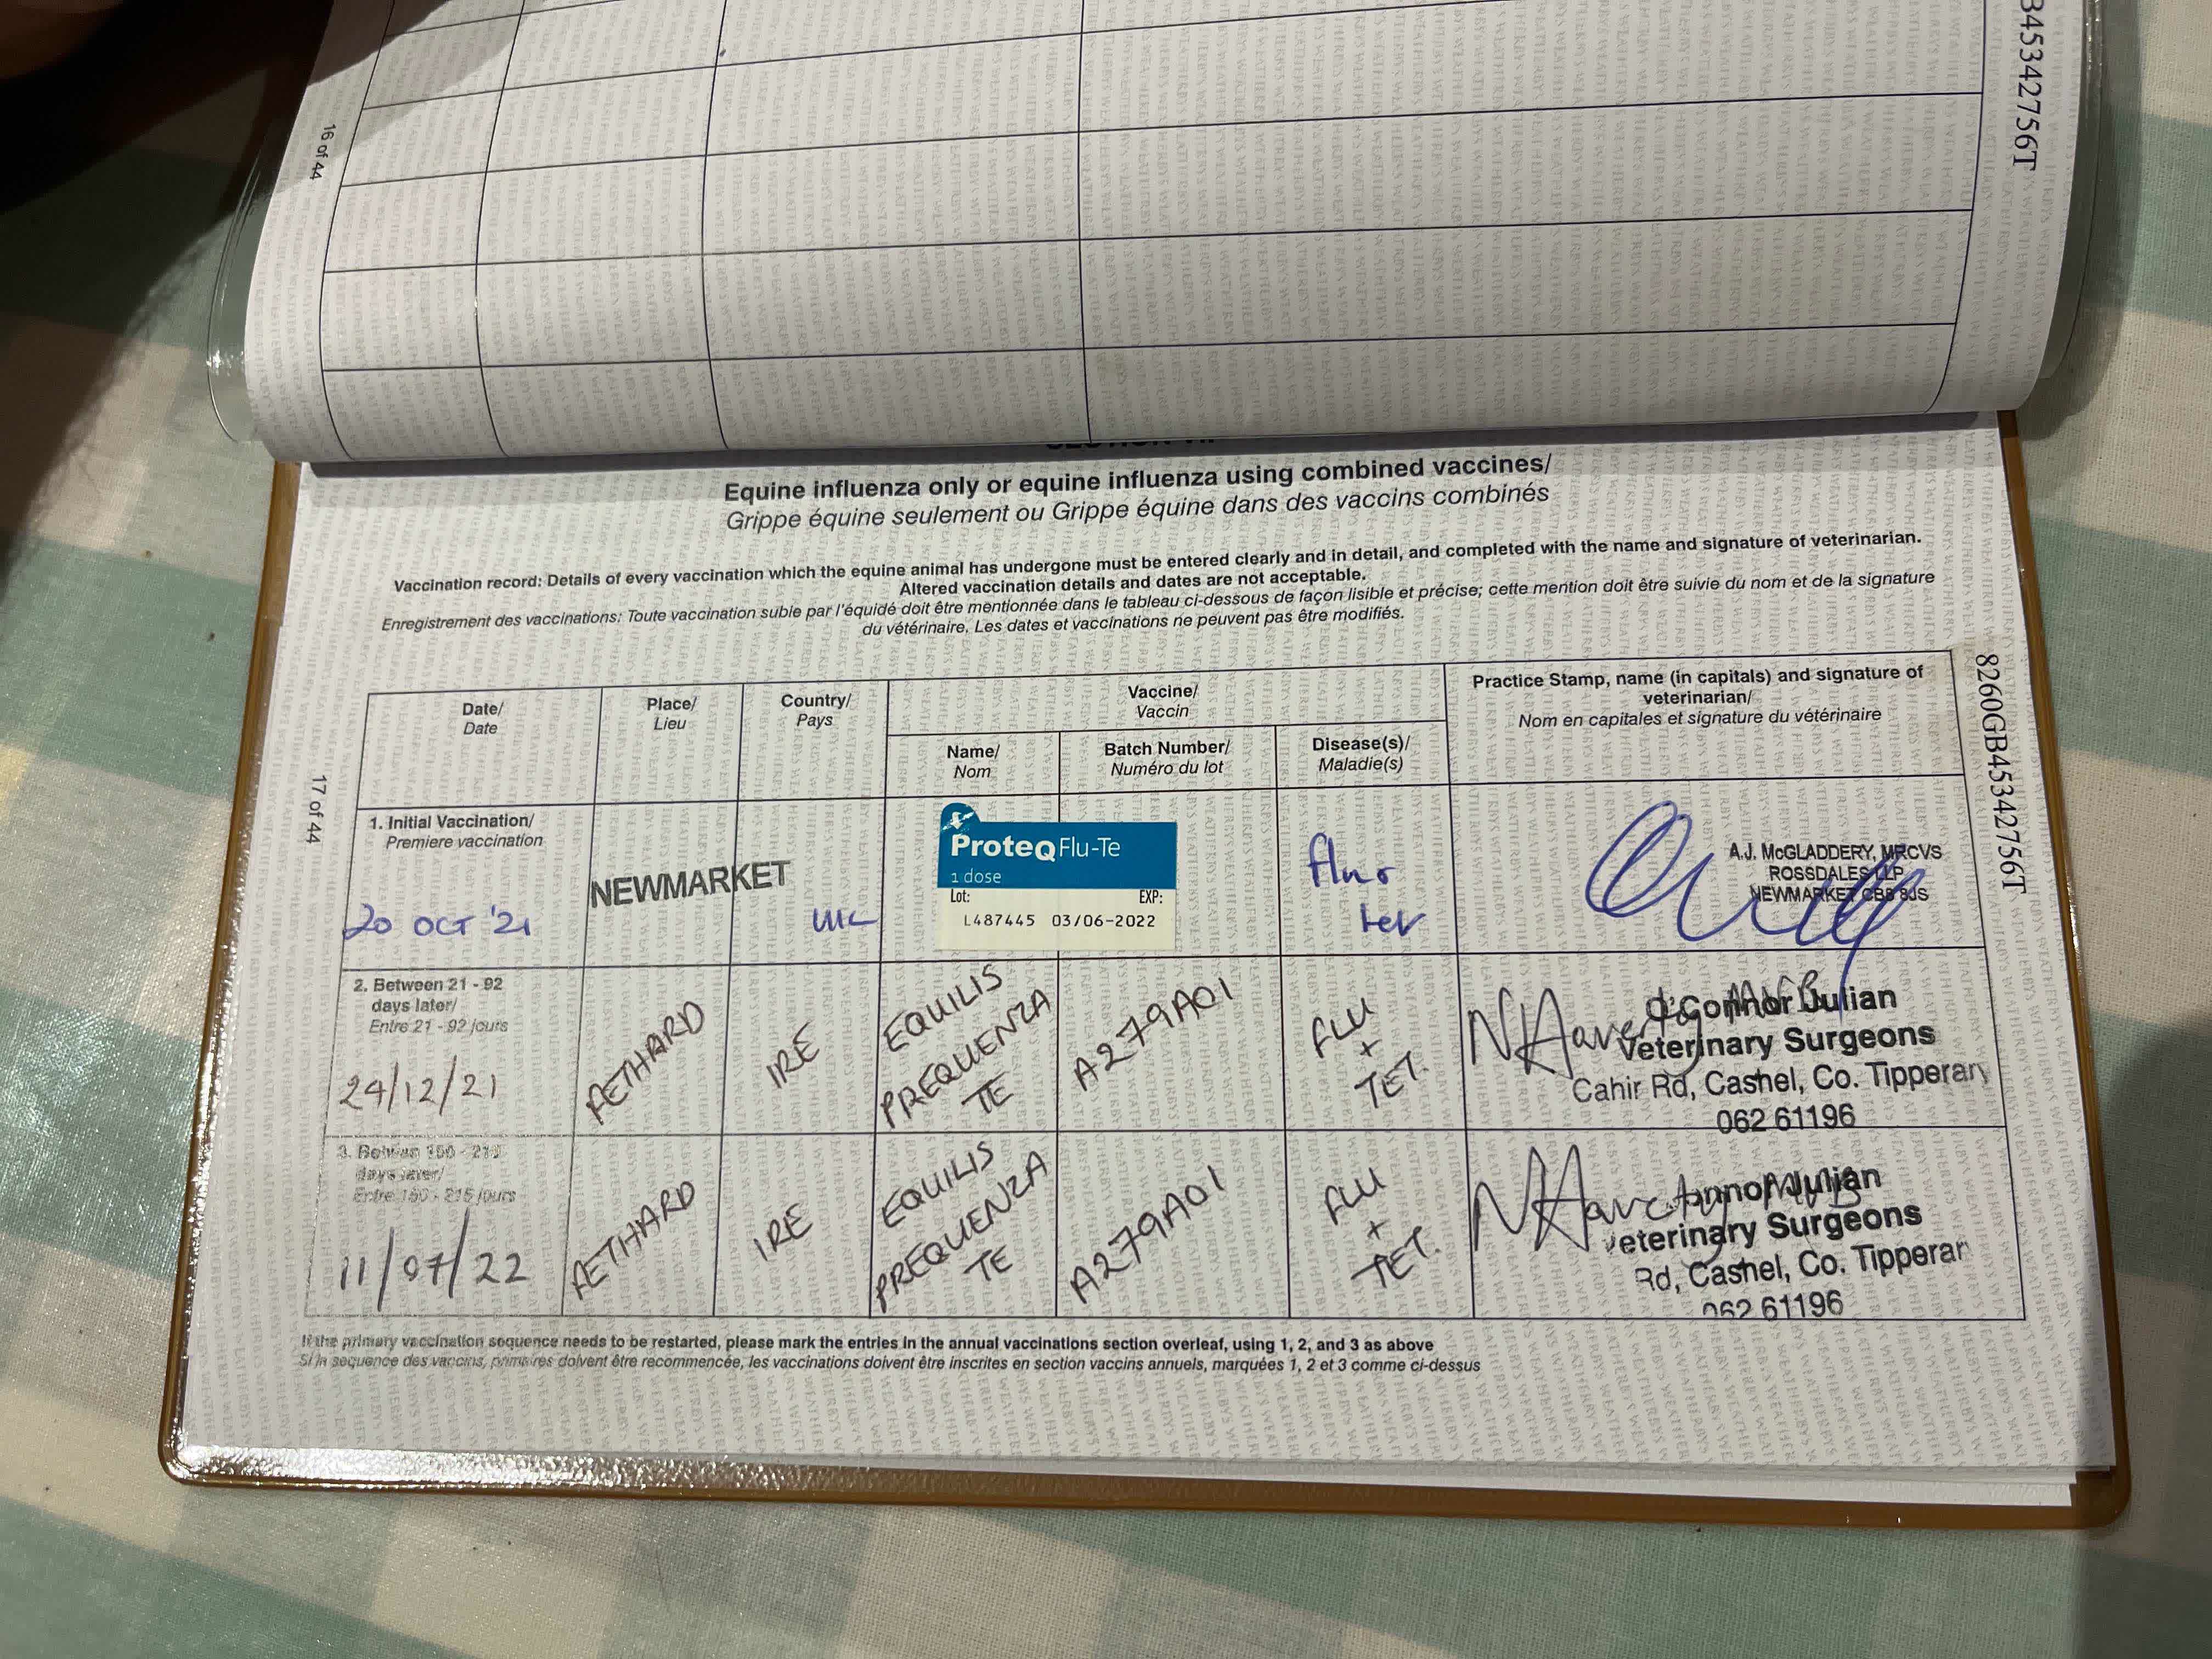 16 of 44
B45342756T
Equine influenza only or equine influenza using combined vaccines/
Grippe équine seulement ou Grippe équine dans des vaccins combinés
Vaccination record: Details of every vaccination which the equine animal has undergone must be entered clearly and in detail, and completed with the name and signature of veterinarian.
Altered vaccination details and dates are not acceptable.
Enregistrement des vaccinations: Toute vaccination subie par l'équidé doit être mentionnée dans le tableau ci-dessous de façon lisible et précise; cette mention doit être suivie du nom et de la signature
du vétérinaire. Les dates et vaccinations ne peuvent pas être modifiés.
8260GB45342756T
17 of 44
Date/
Date
Place/
Lieu
Country/
Pays
Vaccine/
Vaccin
Name/
Nom
Batch Number/
Numéro du lot
Disease(s)/
Maladie(s)
Practice Stamp, name (in capitals) and signature of
veterinarian/
Nom en capitales et signature du vétérinaire
1. Initial Vaccination/
Premiere vaccination
20 OCT '21
NEWMARKET
UK
ProteqFlu-Te
1 dose
Lot: EXP:
L487445 03/06-2022
tet
A.J. McGLADDERY, MRCVS
ROSSDALES LLP
NEWMARKET CB8 8JS
2. Between 21 - 92
days later/
Entre 21 - 92 jours
24/12/21
IRE
EQUILIS
PREQUENZA
TE
A279A01
FLU
+
TET.
O'Connor Julian
Veterinary Surgeons
Cahir Rd, Cashel, Co. Tipperary
062 61196
3. Between 150 - 215
days later/
Entre 150 - 215 jours
11/07/22
IRE
EQUILIS
PREQUENZA
TE
A279A01
FLU
+
TET.
Julian
eterinary Surgeons
Rd, Cashel, Co. Tipperar
062 61196
If the primary vaccination sequence needs to be restarted, please mark the entries in the annual vaccinations section overleaf, using 1, 2, and 3 as above
Si la sequence des vaccins, primaires doivent être recommencée, les vaccinations doivent être inscrites en section vaccins annuels, marquées 1, 2 et 3 comme ci-dessus